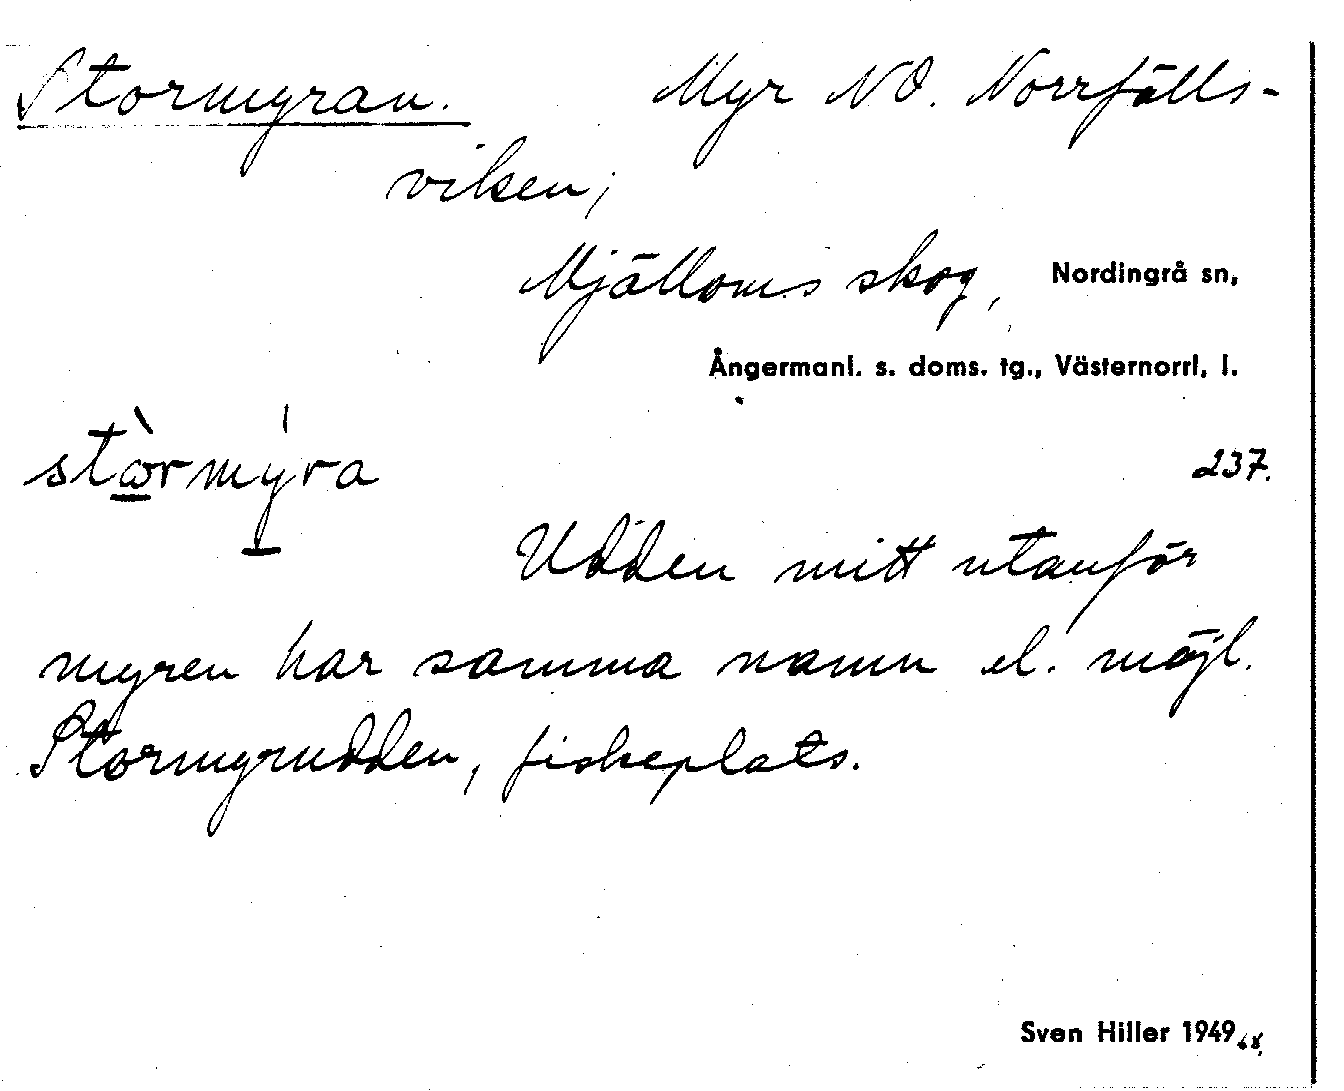 Stormyran. Myr NO. Norrfälls-
viken;
Mjälloms skog, Nordingrå sn,
Ångermanl. s. doms. tg., Västernorrl. l.
237.
Udden mitt utanför
myren har samma namn el. möjl.
Stormyrudden, fiskeplats.
Sven Hiller 1949